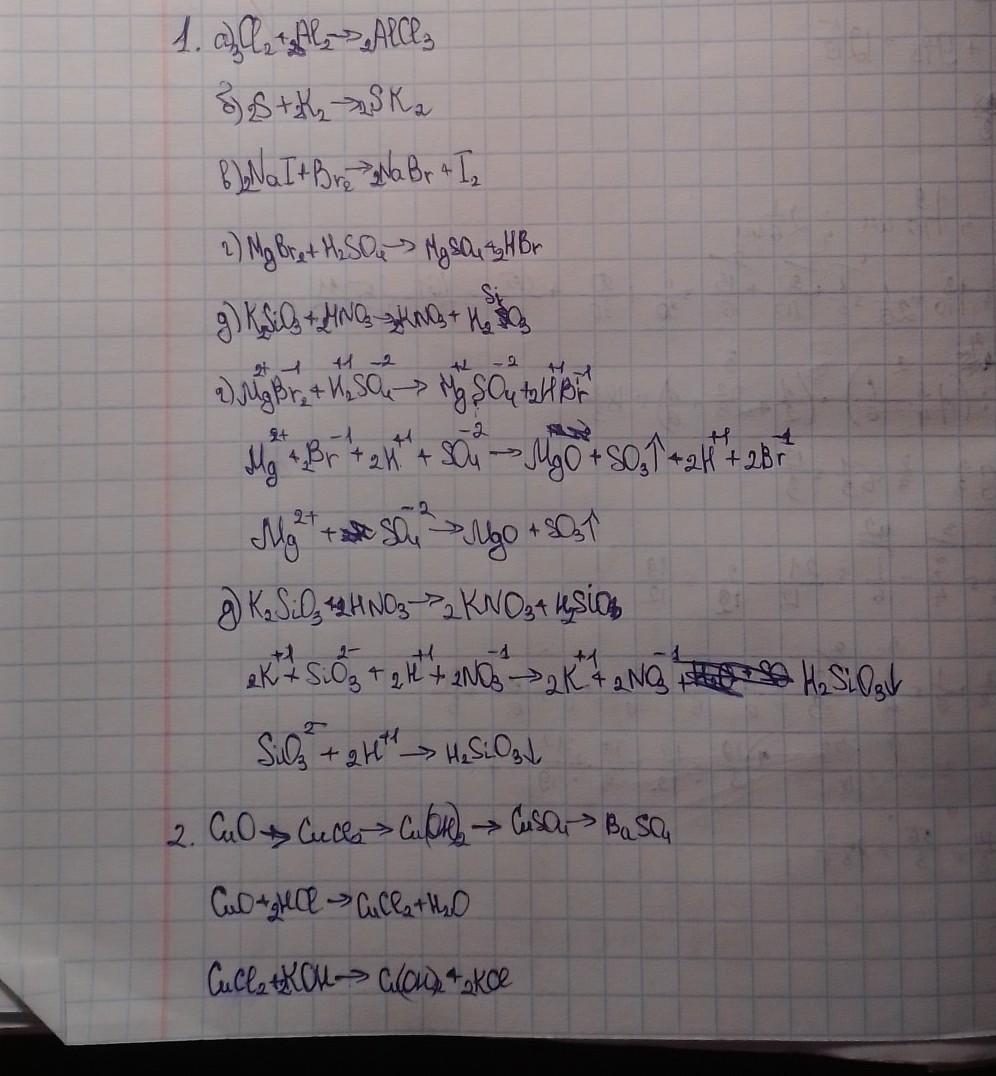 1. а) 3Cl₂ + 2Al₂ → 2AlCl₃
б) 2S + 2K₂ → 2SK₂
в) 2NaI + Br₂ → 2NaBr + I₂
г) MgBr₂ + H₂SO₄ → MgSO₄ + 2HBr
д) K₂SiO₃ + 2HNO₃ → 2KNO₃ + H₂SiO₃
г) Mg²⁺Br₂⁻¹ + H₂⁺¹SO₄⁻² → Mg⁺²SO₄⁻² + 2H⁺¹Br⁻¹
Mg²⁺ + 2Br⁻¹ + 2H⁺¹ + SO₄⁻² → MgO + SO₃↑ + 2H⁺¹ + 2Br⁻¹
Mg²⁺ + SO₄⁻² → MgO + SO₃↑
д) K₂SiO₃ + 2HNO₃ → 2KNO₃ + H₂SiO₃
2K⁺¹ + SiO₃²⁻ + 2H⁺¹ + 2NO₃⁻¹ → 2K⁺¹ + 2NO₃⁻¹ + H₂SiO₃↓
SiO₃²⁻ + 2H⁺¹ → H₂SiO₃↓
2. CuO → CuCl₂ → Cu(OH)₂ → CuSO₄ → BaSO₄
CuO + 2HCl → CuCl₂ + H₂O
CuCl₂ + 2KOH → Cu(OH)₂ + 2KCl